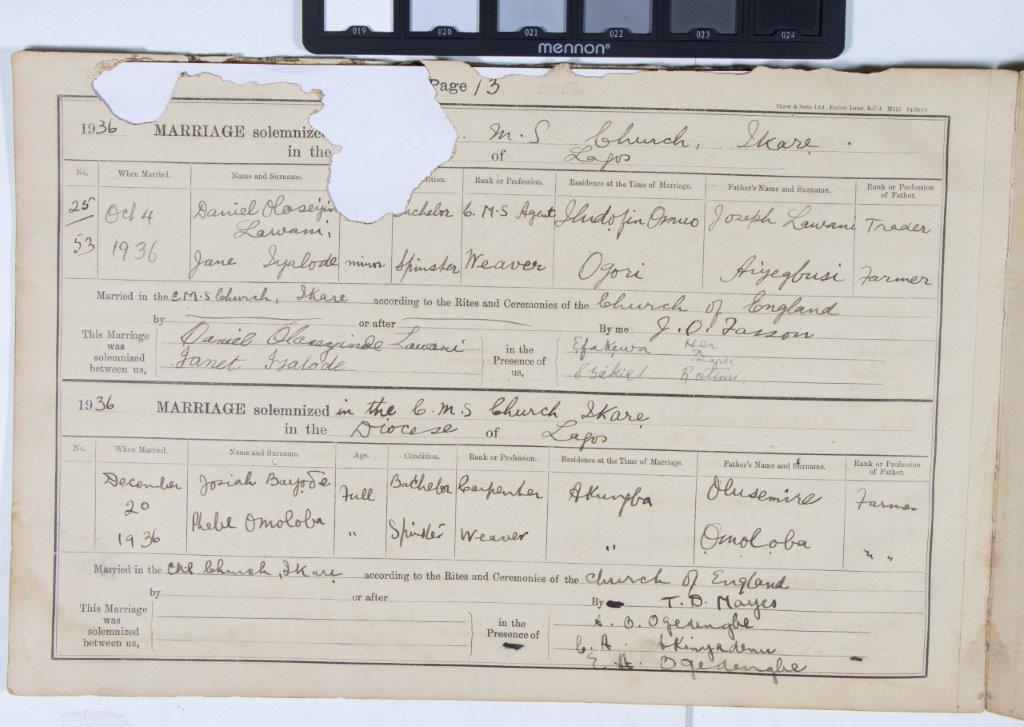 019 020 021 022 023 024
mennon®
Page 13
Shaw & Sons Ltd., Fetter Lane, E.C.4
1936 MARRIAGE solemnized M.S Church, Ikare
in the of Lagos
No. When Married. Name and Surname. Condition. Rank or Profession. Residence at the Time of Marriage. Father's Name and Surname. Rank or Profession of Father.
25 Oct 4 Daniel Bachelor C.M.S Agent Omuo Joseph Lawani Trader
Lawani
53 1936
Jane Iyalode minor Spinster Weaver Ogori Aiyegbusi Farmer
Married in the C.M.S Church, Ikare according to the Rites and Ceremonies of the Church of England
by or after By me
This Marriage was solemnized between us, Daniel Lawani in the Presence of us, Her
Janet Iyalode mark
1936 MARRIAGE solemnized in the C.M.S Church Ikare
in the Diocese of Lagos
No. When Married. Name and Surname. Age. Condition. Rank or Profession. Residence at the Time of Marriage. Father's Name and Surname. Rank or Profession of Father.
December Josiah Bayode Full Bachelor Carpenter Akungba Olusemire Farmer
20
1936 Phebe Omoloba " Spinster Weaver " Omoloba " "
Married in the CMS Church, Ikare according to the Rites and Ceremonies of the Church of England
by or after By T. D. Mayes
This Marriage was solemnized between us, in the Presence of A. O. Ogedengbe
C. A. Akinyadenu
E. A. Ogedengbe